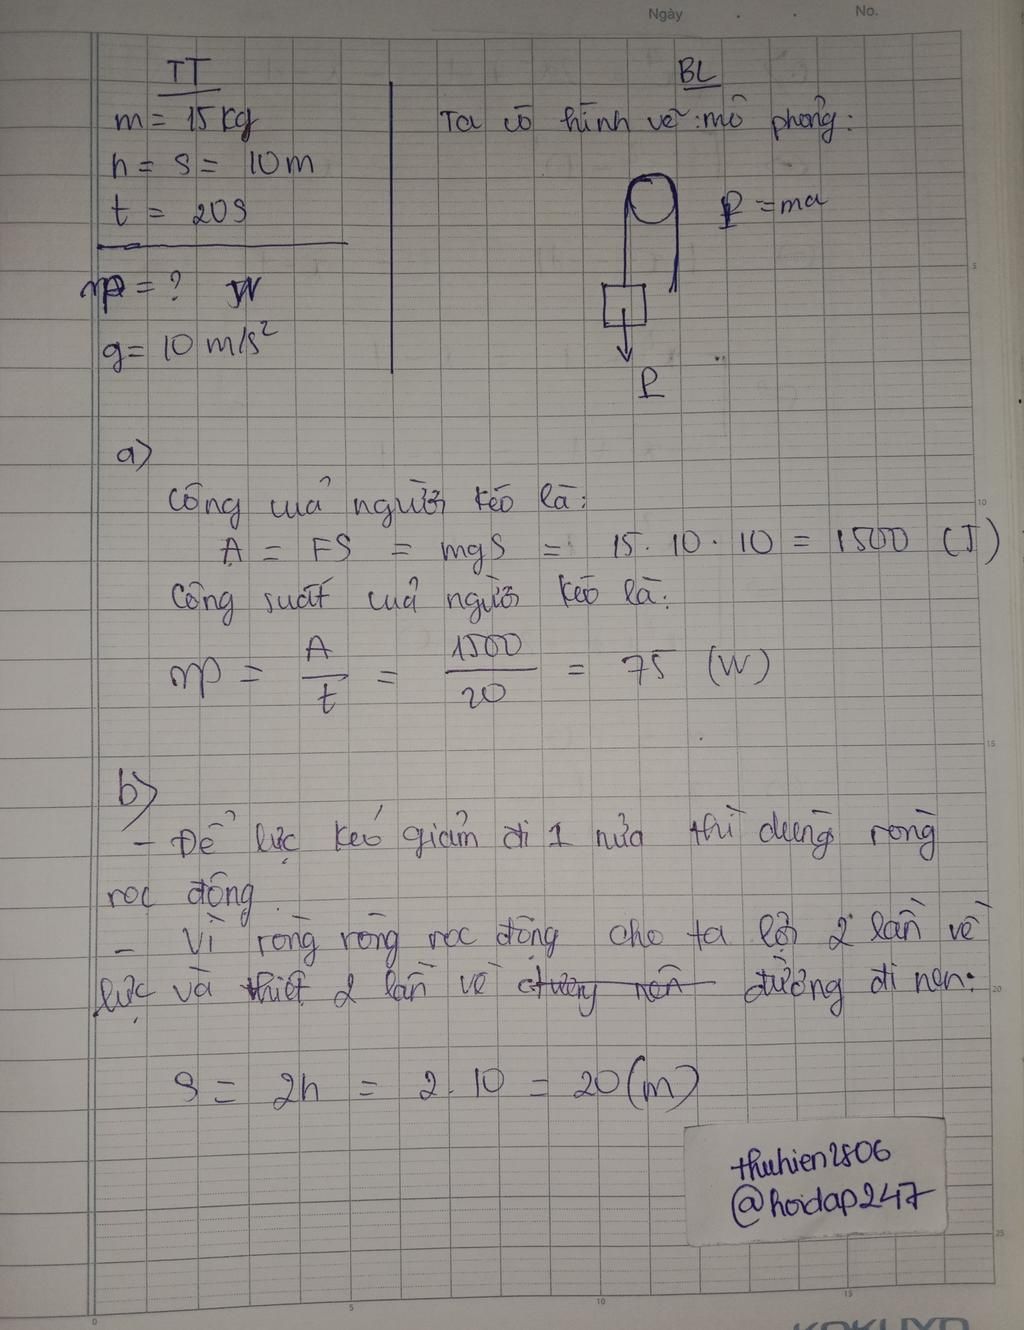 Ngày . . No.
TT
m = 15 kg
h = s = 10 m
t = 20 s
P = ? W
g = 10 m/s²
BL
Ta có hình vẽ mô phỏng:
P = ma
P
a)
Công cuả người kéo là:
A = FS = mgS = 15. 10 . 10 = 1500 (J)
Công suất cuả người kéo là:
P = A/t = 1500/20 = 75 (W)
b)
- Để lực kéo giảm đi 1 nửa thì dùng ròng
rọc động.
- Vì ròng ròng rọc động cho ta lợi 2 lần về
lực và thiệt 2 lần về đường đi nên:
S = 2h = 2. 10 = 20 (m)
thuhien2806
@hoidap247
5
10
15
20
25
0 5 10 15
KOKUYO